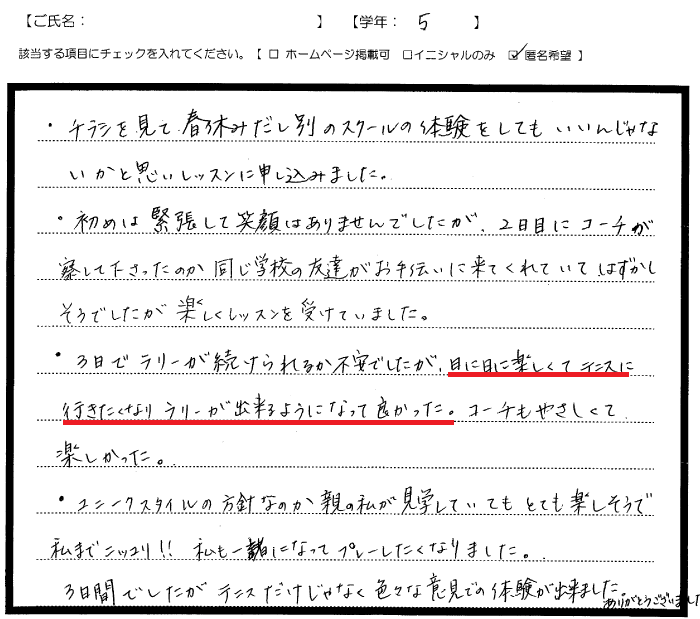 【ご氏名： 】 【学年： 5 】
該当する項目にチェックを入れてください。【 □ ホームページ掲載可 □イニシャルのみ ☑匿名希望 】
・チラシを見て春休みだし別のスクールの体験をしてもいいんじゃな
いかと思いレッスンに申し込みました。
・初めは緊張して笑顔はありませんでしたが、2日目にコーチが
察して下さったのか同じ学校の友達がお手伝いに来てくれていてはずかし
そうでしたが楽しくレッスンを受けていました。
・3日でラリーが続けられるか不安でしたが、日に日に楽しくてテニスに
行きたくなりラリーが出来るようになって良かった。コーチもやさしくて
楽しかった。
・ユニークスタイルの方針なのか親の私が見学していてもとても楽しそうで
私までニッコリ!! 私も一緒になってプレーしたくなりました。
3日間でしたがテニスだけじゃなく色々な意見での体験が出来ました。
ありがとうございました